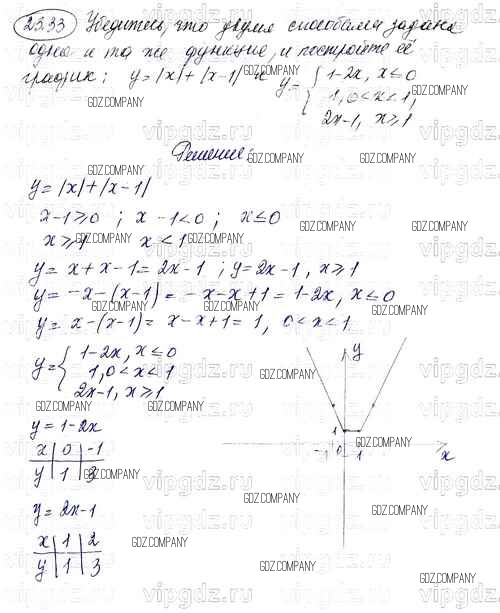 25.33 Убедитесь, что двумя способами задана
одна и та же функция, и постройте её
график: y=|x|+|x-1| и y={1-2x, x≤0
1, 0<x<1,
2x-1, x≥1
Решение:
y=|x|+|x-1|
x-1≥0 ; x-1<0 ; x≤0
x≥1 x<1
y=x+x-1=2x-1 ; y=2x-1, x≥1
y=-x-(x-1)=-x-x+1=1-2x, x≤0
y=x-(x-1)=x-x+1=1, 0<x<1
y={1-2x, x≤0
1, 0<x<1
2x-1, x≥1
y=1-2x
x 0 -1
y 1 3
y=2x-1
x 1 2
y 1 3
y
1
-1 0 1 x
GDZ.COMPANY
vipgdz.ru